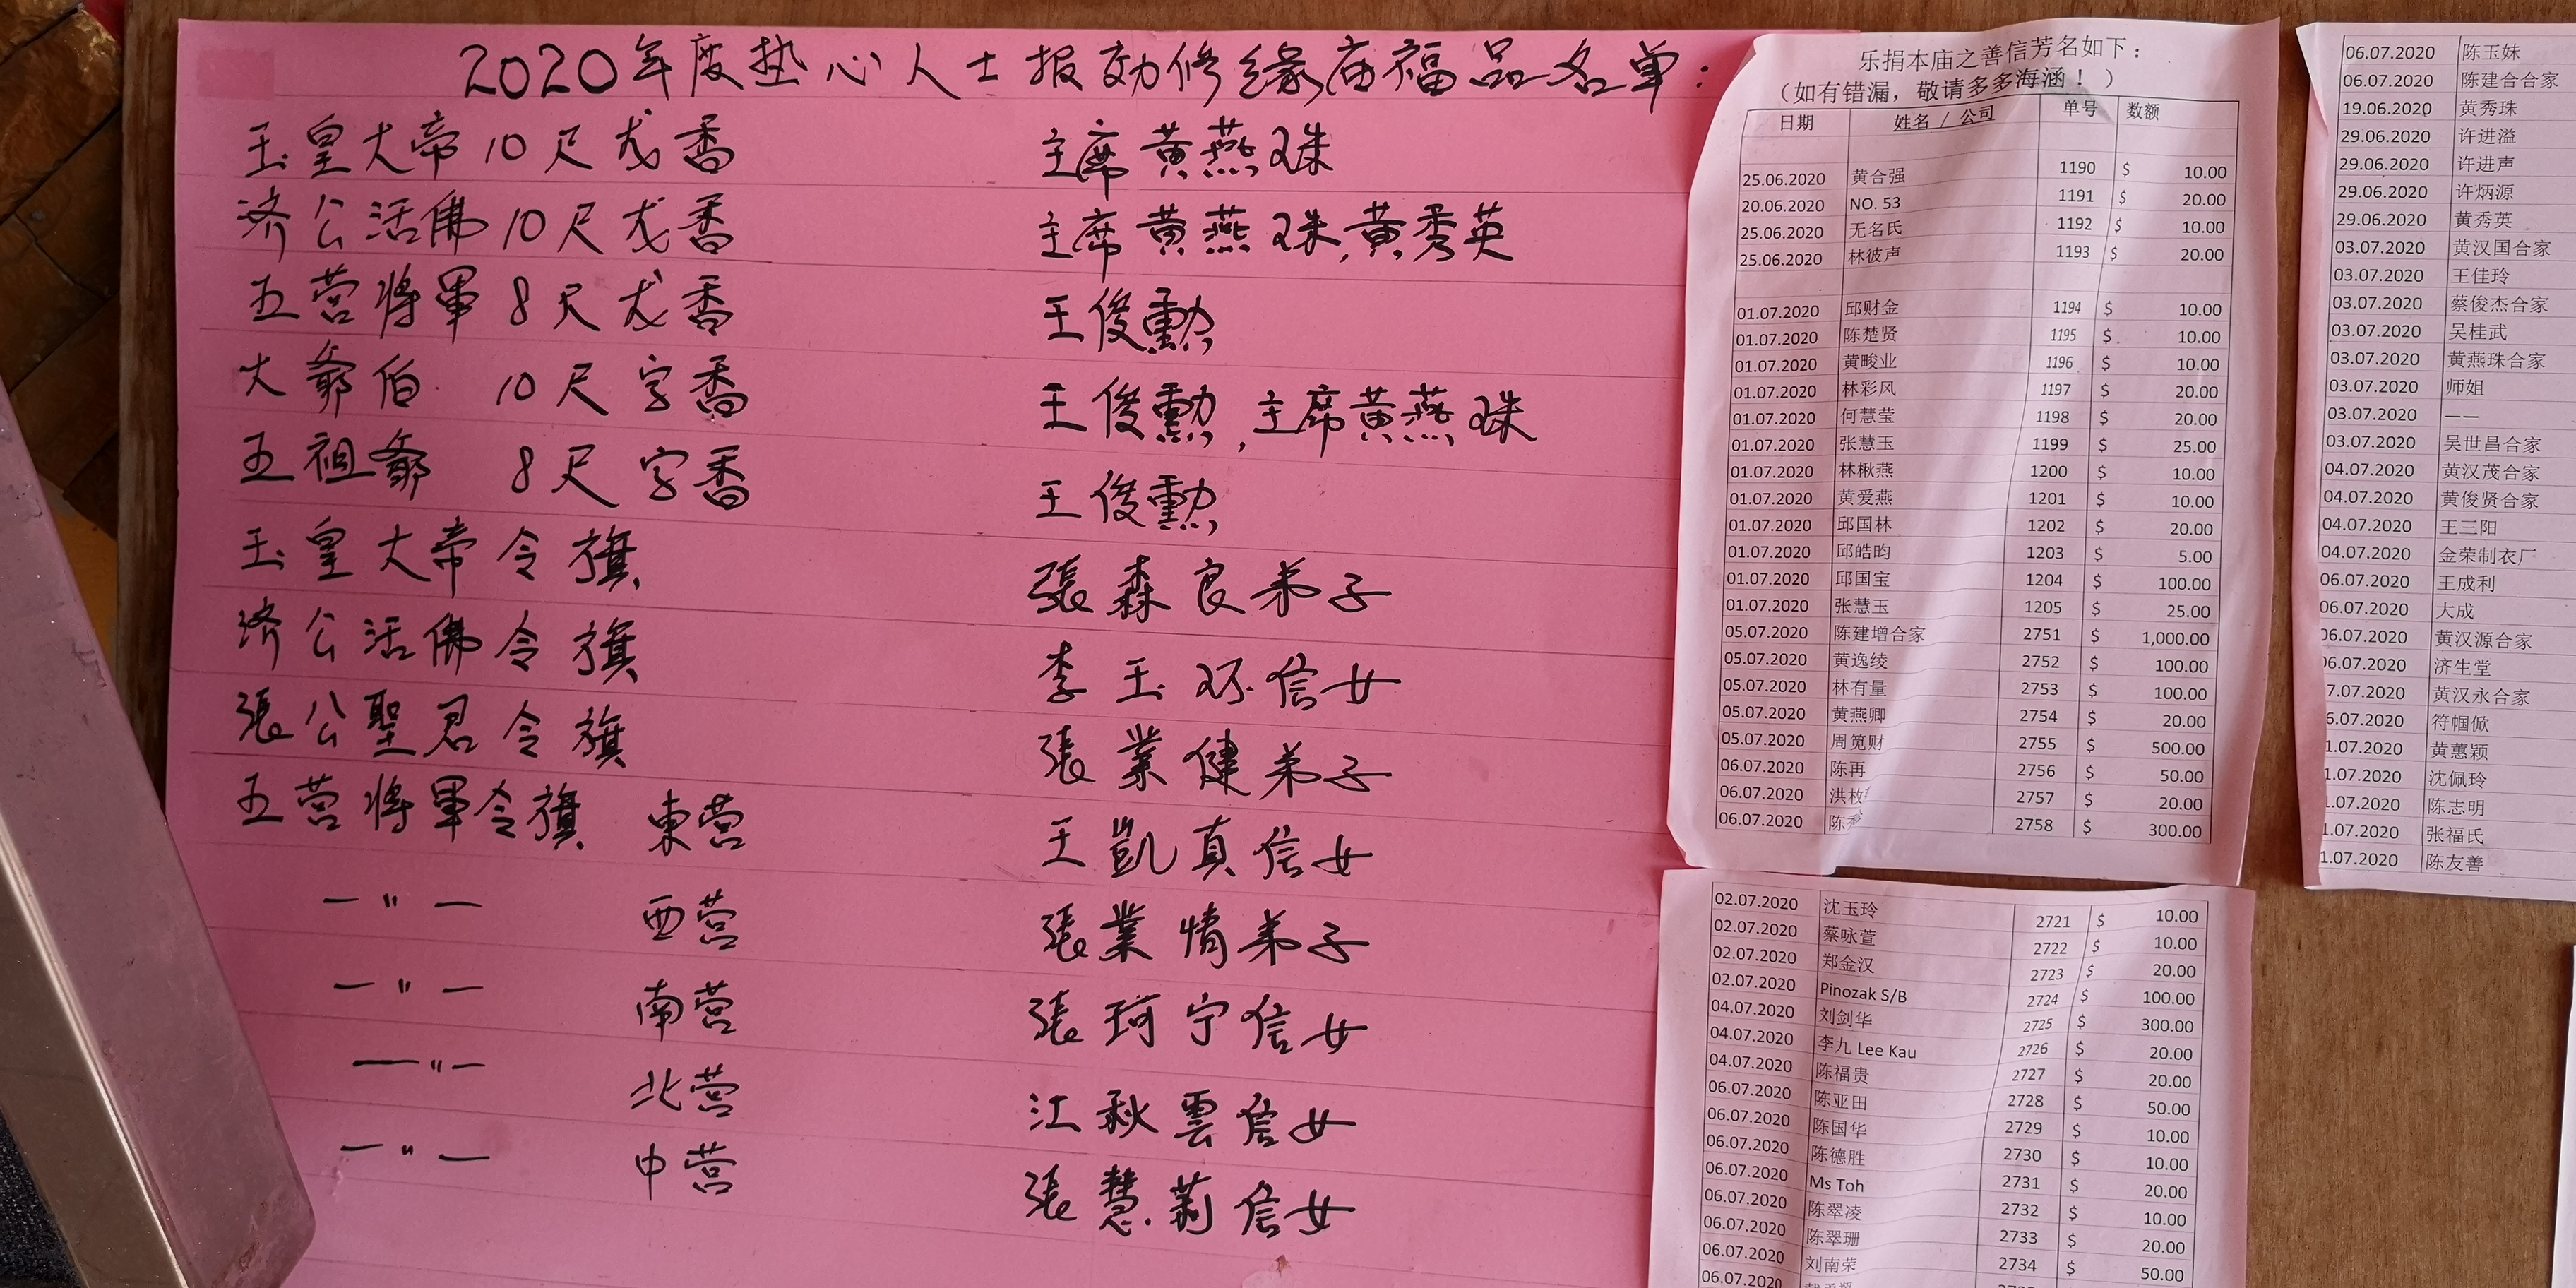 2020年度热心人士报効修缘庙福品名单：
玉皇大帝 10尺龙香 主席黄燕珠
济公活佛 10尺龙香 主席黄燕珠,黄秀英
五营将軍 8尺龙香 王俊勳
大爺伯 10尺字香 王俊勳,主席黄燕珠
五祖爺 8尺字香 王俊勳
玉皇大帝令旗 張森良弟子
济公活佛令旗 李玉环信女
張公聖君令旗 張業健弟子
五营将軍令旗 東营 王凱真信女
—〃— 西营 張業情弟子
—〃— 南营 張珂宁信女
—〃— 北营 江秋雲信女
—〃— 中营 張慧莉信女
乐捐本庙之善信芳名如下：
（如有错漏，敬请多多海涵！）
日期 姓名 / 公司 单号 数额
25.06.2020 黄合强 1190 $ 10.00
20.06.2020 NO. 53 1191 $ 20.00
25.06.2020 无名氏 1192 $ 10.00
25.06.2020 林彼声 1193 $ 20.00
01.07.2020 邱财金 1194 $ 10.00
01.07.2020 陈楚贤 1195 $ 10.00
01.07.2020 黄畯业 1196 $ 10.00
01.07.2020 林彩风 1197 $ 20.00
01.07.2020 何慧莹 1198 $ 20.00
01.07.2020 张慧玉 1199 $ 25.00
01.07.2020 林楸燕 1200 $ 10.00
01.07.2020 黄爱燕 1201 $ 10.00
01.07.2020 邱国林 1202 $ 20.00
01.07.2020 邱皓昀 1203 $ 5.00
01.07.2020 邱国宝 1204 $ 100.00
01.07.2020 张慧玉 1205 $ 25.00
05.07.2020 陈建增合家 2751 $ 1,000.00
05.07.2020 黄逸绫 2752 $ 100.00
05.07.2020 林有量 2753 $ 100.00
05.07.2020 黄燕卿 2754 $ 20.00
05.07.2020 周笕财 2755 $ 500.00
06.07.2020 陈再 2756 $ 50.00
06.07.2020 洪 2757 $ 20.00
06.07.2020 陈 2758 $ 300.00
02.07.2020 沈玉玲 2721 $ 10.00
02.07.2020 蔡咏萱 2722 $ 10.00
02.07.2020 郑金汉 2723 $ 20.00
02.07.2020 Pinozak S/B 2724 $ 100.00
04.07.2020 刘剑华 2725 $ 300.00
04.07.2020 李九 Lee Kau 2726 $ 20.00
04.07.2020 陈福贵 2727 $ 20.00
06.07.2020 陈亚田 2728 $ 50.00
06.07.2020 陈国华 2729 $ 10.00
06.07.2020 陈德胜 2730 $ 10.00
06.07.2020 Ms Toh 2731 $ 20.00
06.07.2020 陈翠凌 2732 $ 10.00
06.07.2020 陈翠珊 2733 $ 20.00
06.07.2020 刘南荣 2734 $ 50.00
06.07.2020
06.07.2020 陈玉妹
06.07.2020 陈建合合家
19.06.2020 黄秀珠
29.06.2020 许进溢
29.06.2020 许进声
29.06.2020 许炳源
29.06.2020 黄秀英
03.07.2020 黄汉国合家
03.07.2020 王佳玲
03.07.2020 蔡俊杰合家
03.07.2020 吴桂武
03.07.2020 黄燕珠合家
03.07.2020 师姐
03.07.2020 一一
03.07.2020 吴世昌合家
04.07.2020 黄汉茂合家
04.07.2020 黄俊贤合家
04.07.2020 王三阳
04.07.2020 金荣制衣厂
06.07.2020 王成利
06.07.2020 大成
06.07.2020 黄汉源合家
06.07.2020 济生堂
7.07.2020 黄汉永合家
6.07.2020 符帼俽
1.07.2020 黄蕙颖
1.07.2020 沈佩玲
1.07.2020 陈志明
1.07.2020 张福氏
1.07.2020 陈友善